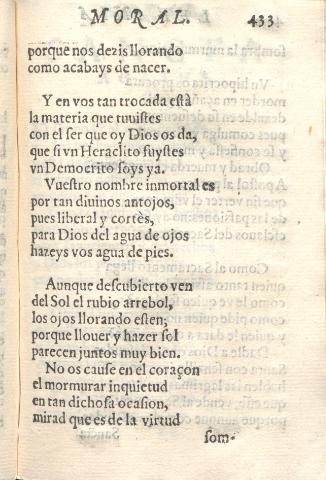 MORAL. 433
porque nos dezis llorando
como acabays de nacer.
Y en vos tan trocada està
la materia que tuuistes
con el ser que oy Dios os da,
que si vn Heraclito fuystes
vn Democrito soys ya.
Vuestro nombre inmortal es
por tan diuinos antojos,
pues liberal y cortès,
para Dios del agua de ojos
hazeys vos agua de pies.
Aunque descubierto ven
del Sol el rubio arrebol,
los ojos llorando esten;
porque llouer y hazer sol
parecen juntos muy bien.
No os cause en el coraçon
el mormurar inquietud
en tan dichosa ocasion,
mirad que es de la virtud
som-